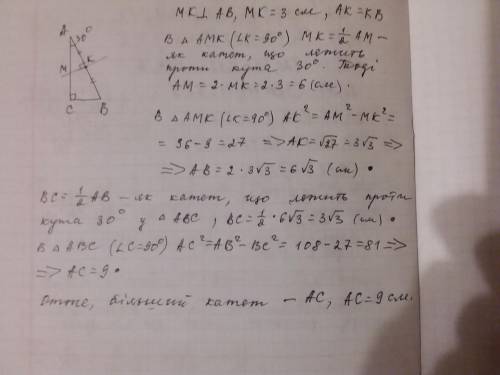 MK⊥AB, MK = 3 см, AK = KB
A
30°
K
M
C
B
В △ AMK (∠K=90°) MK = 1/2 AM –
як катет, що лежить
проти кута 30°. Тоді
AM = 2·MK = 2·3 = 6 (см).
В △ AMK (∠K=90°) AK² = AM² – MK² =
= 36 – 9 = 27 => AK = √27 = 3√3 =>
=> AB = 2·3√3 = 6√3 (см).
BC = 1/2 AB – як катет, що лежить проти
кута 30° у △ABC, BC = 1/2 · 6√3 = 3√3 (см).
В △ABC (∠C=90°) AC² = AB² – BC² = 108 – 27 = 81 =>
=> AC = 9.
Отже, більший катет – AC, AC = 9 см.